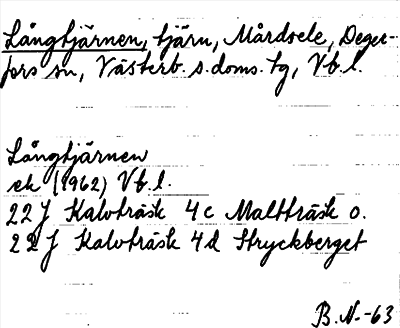 Långtjärnen, tjärn, Mårdsele, Deger-
fors sn, Västerb. s. doms. tg, Vb. l.
Långtjärnen
ek (1962) Vb. l.
22J Kalvträsk 4c Maltträsk o.
22J Kalvträsk 4d Stryckberget
B.N.-63